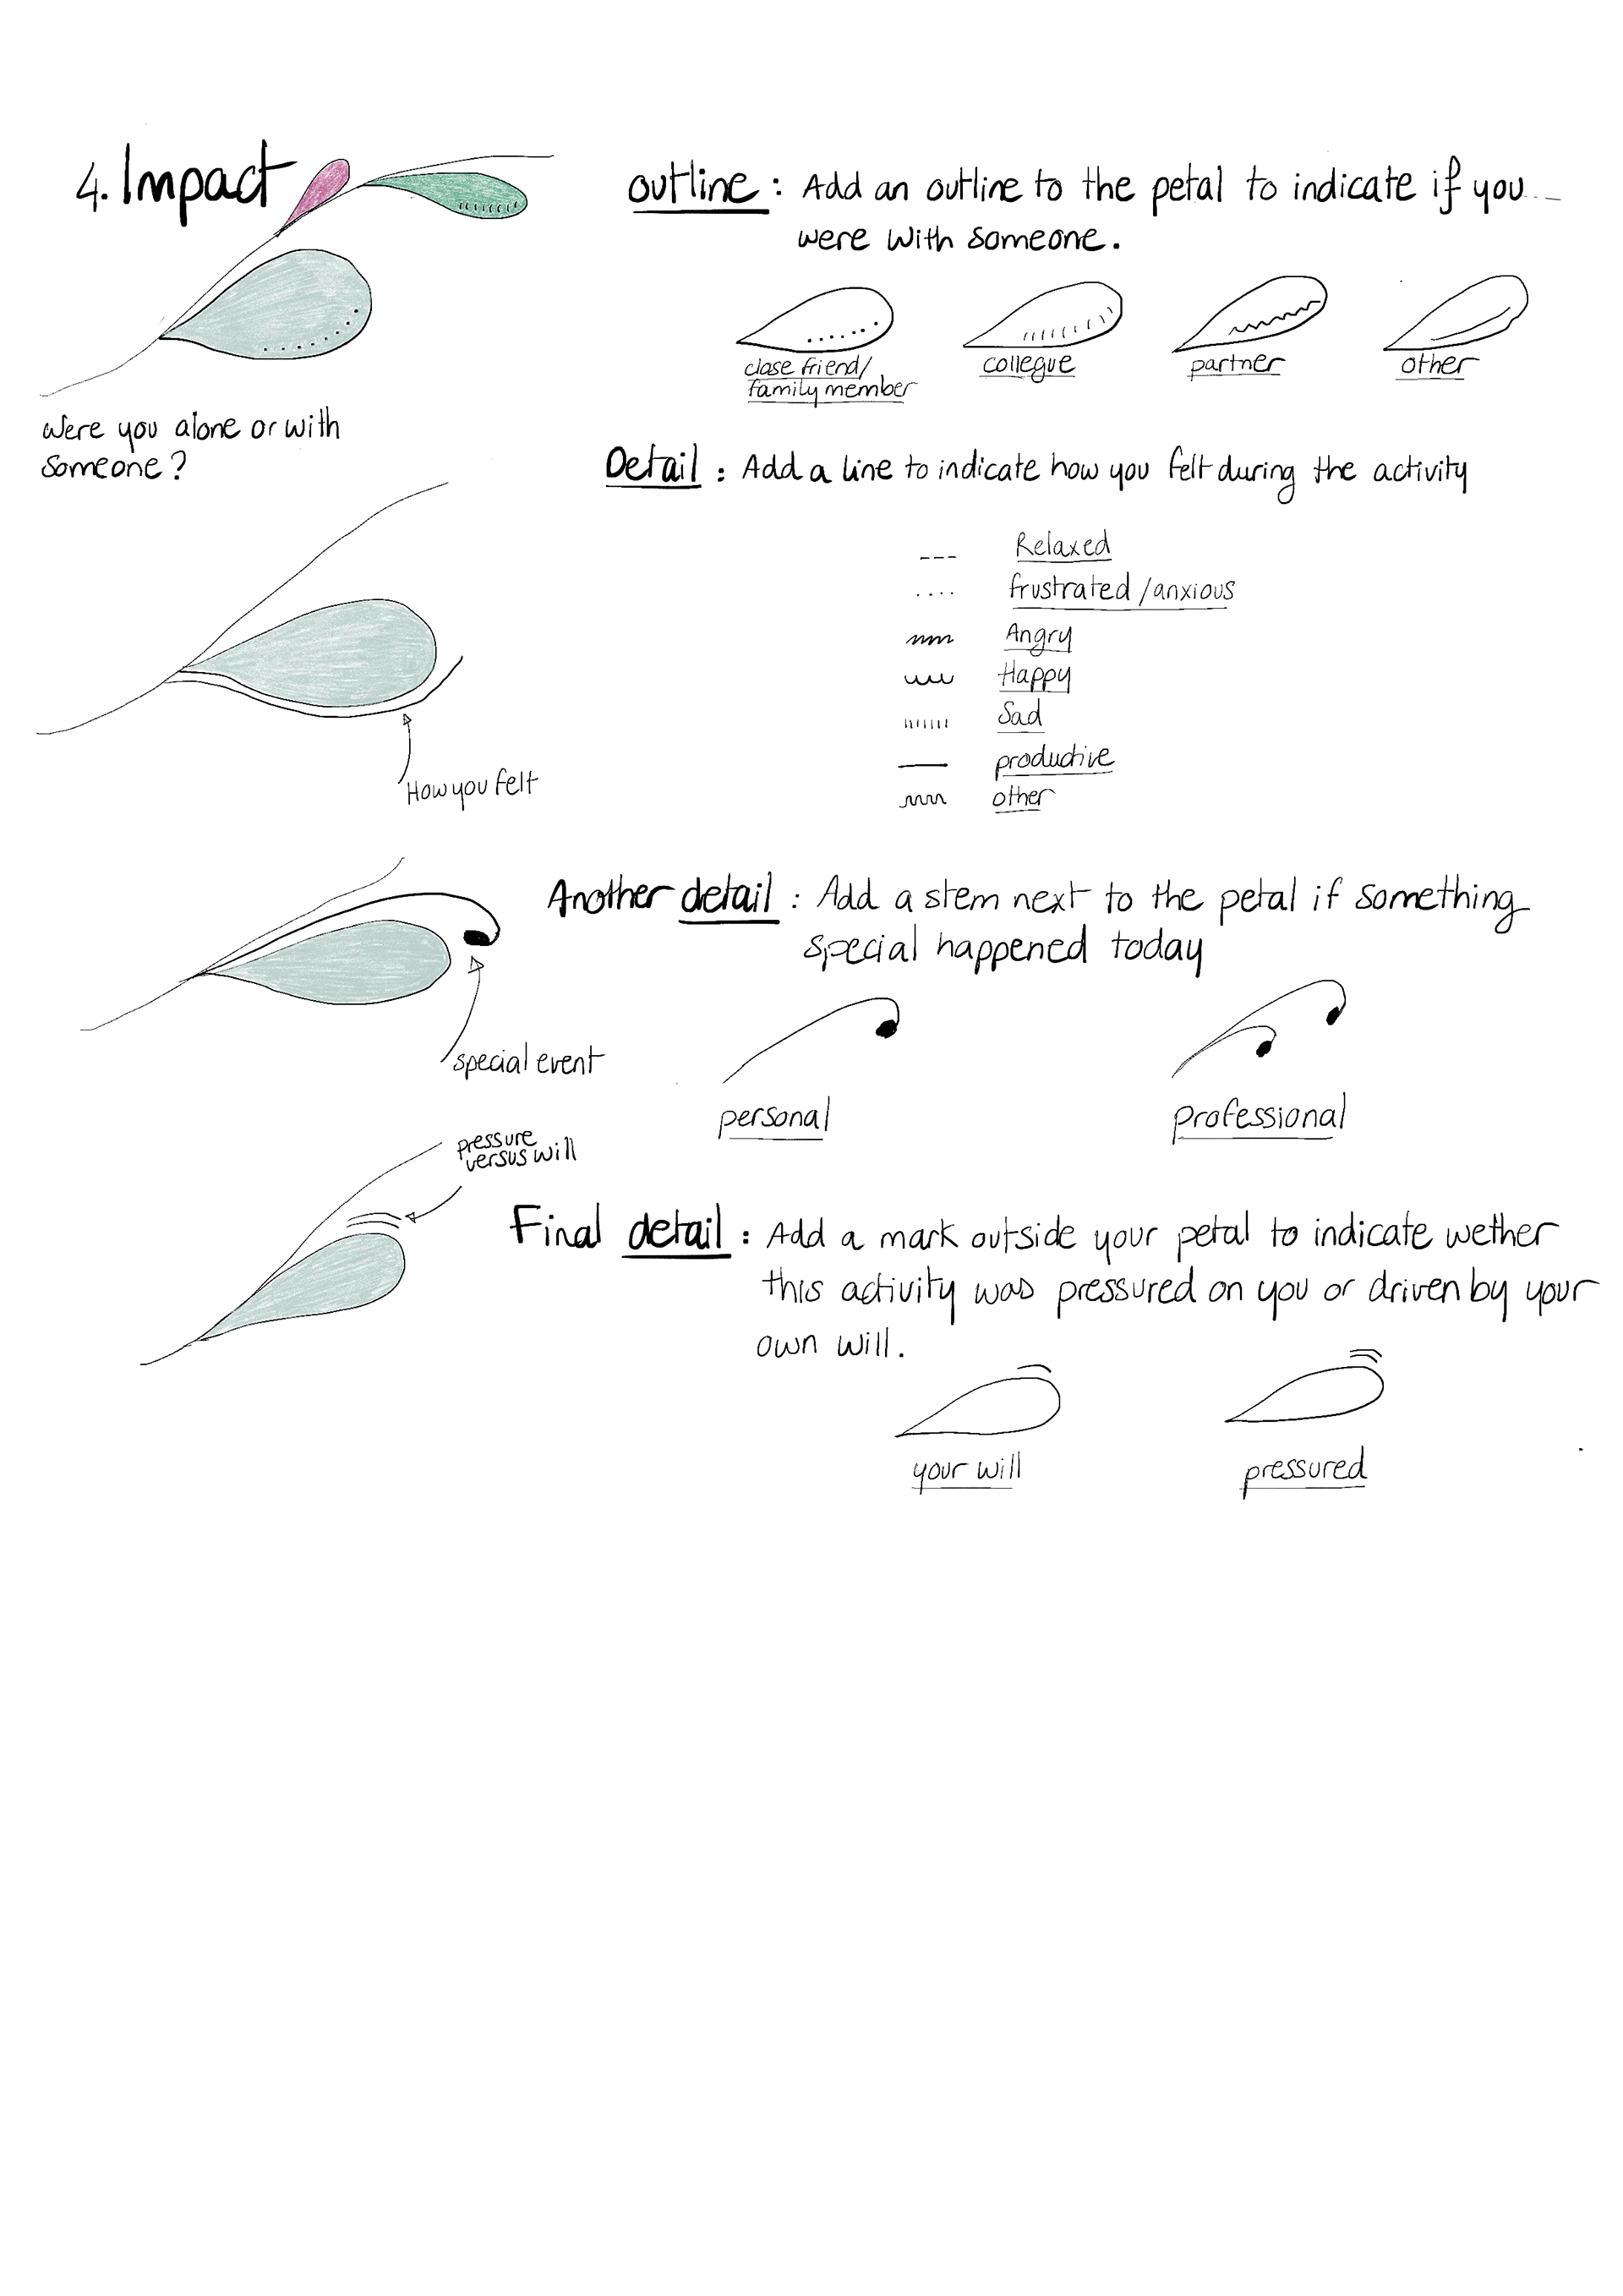 4. Impact
outline : Add an outline to the petal to indicate if you
were with someone.
close friend/
family member
collegue
partner
other
Were you alone or with
someone?
Detail : Add a line to indicate how you felt during the activity
Relaxed
frustrated / anxious
Angry
Happy
Sad
productive
other
How you felt
Another detail : Add a stem next to the petal if something
special happened today
special event
personal
professional
pressure
versus will
Final detail : Add a mark outside your petal to indicate wether
this activity was pressured on you or driven by your
own will.
your will
pressured